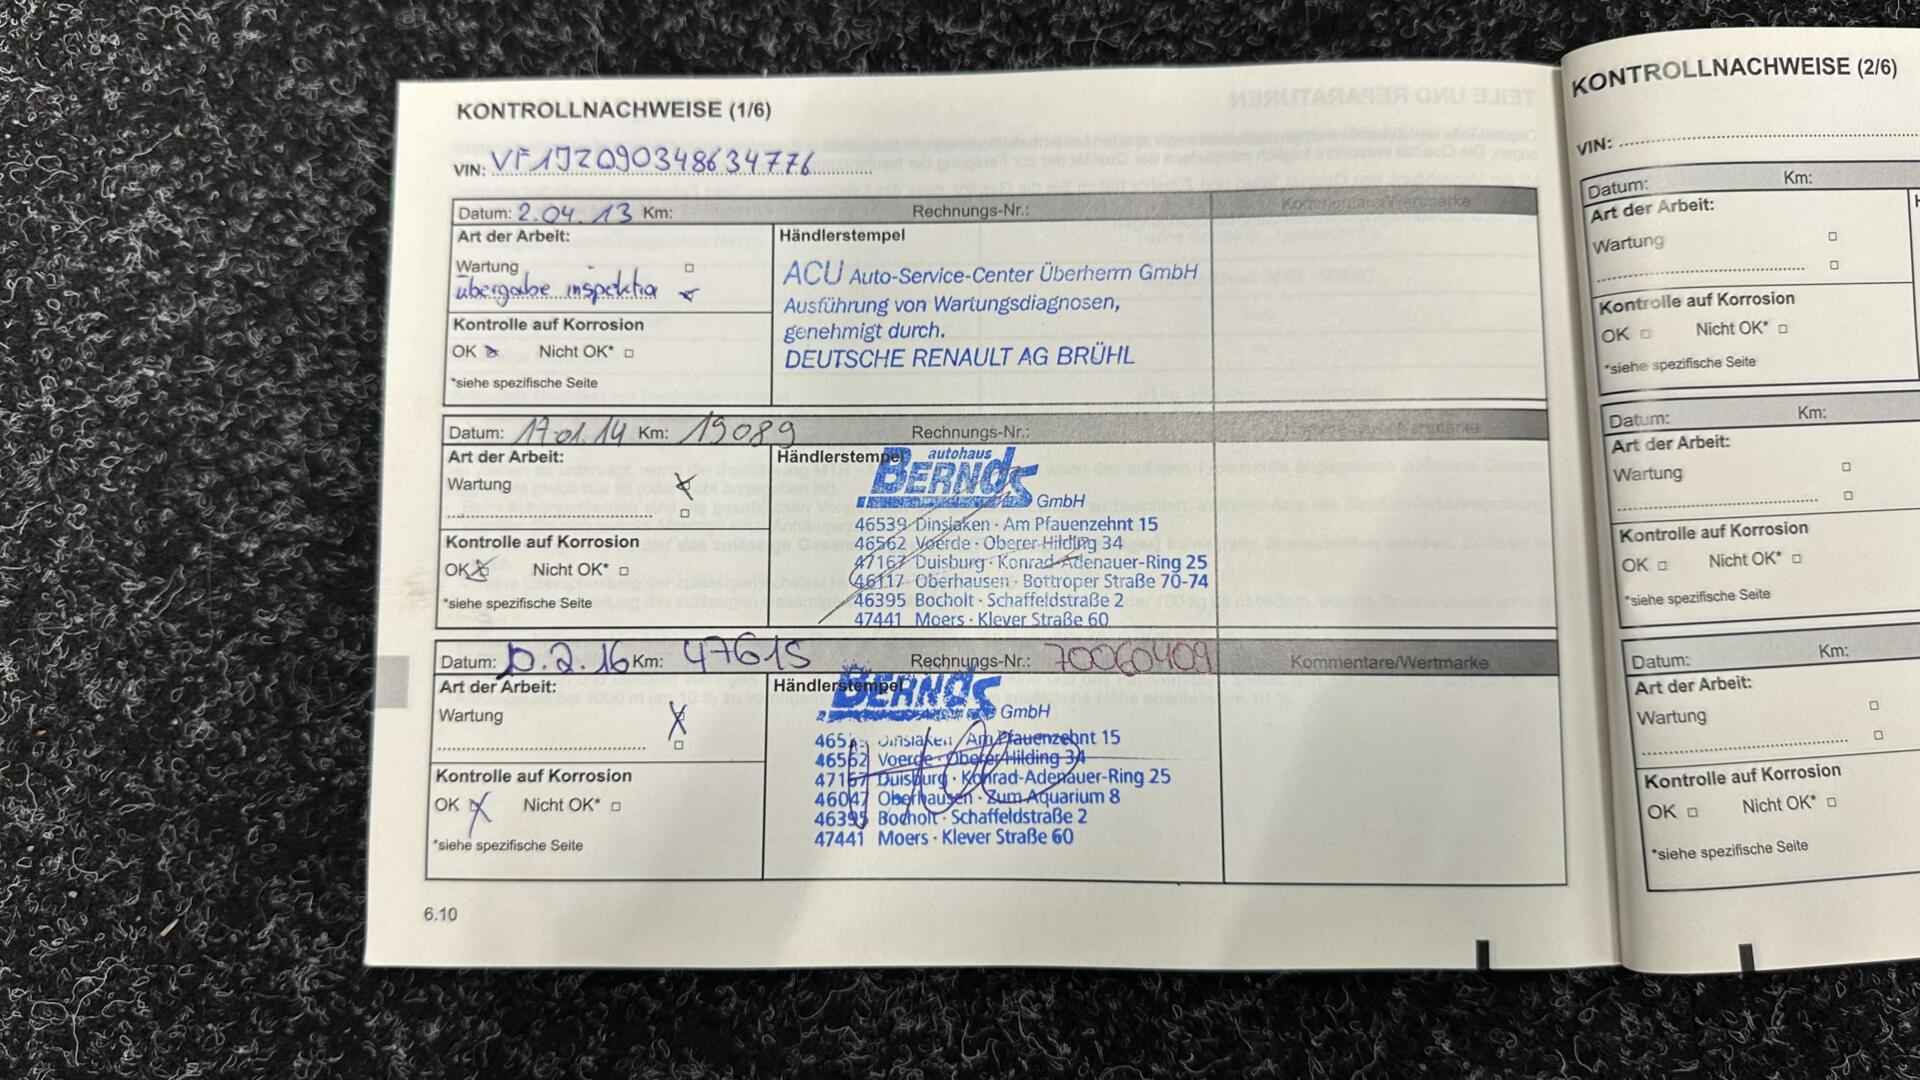 KONTROLLNACHWEISE (1/6)
VIN: VF1JZ090348634776
Datum: 2.04.13 Km: Rechnungs-Nr.: Kommentare/Wertmarke
Art der Arbeit:
Wartung
übergabe inspektion
Kontrolle auf Korrosion
OK Nicht OK*
*siehe spezifische Seite
Händlerstempel
ACU Auto-Service-Center Überherrn GmbH
Ausführung von Wartungsdiagnosen,
genehmigt durch.
DEUTSCHE RENAULT AG BRÜHL
Datum: 17.01.14 Km: 19089 Rechnungs-Nr.:
Art der Arbeit:
Wartung
Kontrolle auf Korrosion
OK Nicht OK*
*siehe spezifische Seite
Händlerstempel
autohaus
BERNDS
GmbH
46539 Dinslaken · Am Pfauenzehnt 15
46562 Voerde · Oberer Hilding 34
47167 Duisburg · Konrad-Adenauer-Ring 25
46117 Oberhausen · Bottroper Straße 70-74
46395 Bocholt · Schaffeldstraße 2
47441 Moers · Klever Straße 60
Datum: 10.2.16 Km: 47615 Rechnungs-Nr.: 70060409 Kommentare/Wertmarke
Art der Arbeit:
Wartung
Kontrolle auf Korrosion
OK Nicht OK*
*siehe spezifische Seite
Händlerstempel
BERNDS
GmbH
Dinslaken Am Pfauenzehnt 15
46562 Voerde · Oberer Hilding 34
47167 Duisburg · Konrad-Adenauer-Ring 25
46047 Oberhausen · Zum Aquarium 8
46395 Bocholt · Schaffeldstraße 2
47441 Moers · Klever Straße 60
6.10
KONTROLLNACHWEISE (2/6)
VIN:
Datum: Km:
Art der Arbeit:
Wartung
Kontrolle auf Korrosion
OK Nicht OK*
*siehe spezifische Seite
Datum: Km:
Art der Arbeit:
Wartung
Kontrolle auf Korrosion
OK Nicht OK*
*siehe spezifische Seite
Datum: Km:
Art der Arbeit:
Wartung
Kontrolle auf Korrosion
OK Nicht OK*
*siehe spezifische Seite